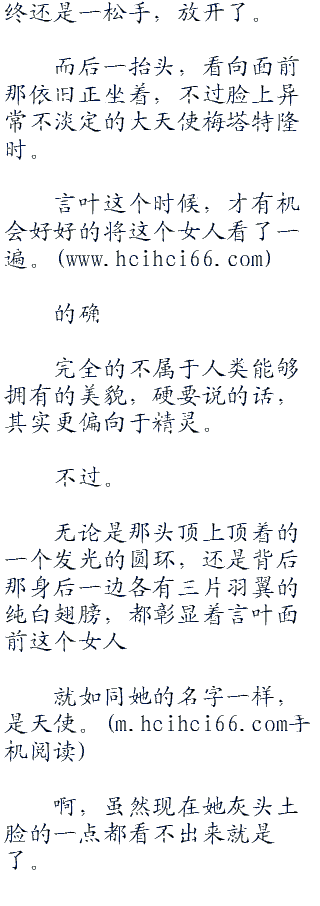 终还是一松手，放开了。
而后一抬头，看向面前
那依旧正坐着，不过脸上异
常不淡定的大天使梅塔特隆
时。
言叶这个时候，才有机
会好好的将这个女人看了一
遍。(www.hcihci66.com)
的确
完全的不属于人类能够
拥有的美貌，硬要说的话，
其实更偏向于精灵。
不过。
无论是那头顶上顶着的
一个发光的圆环，还是背后
那身后一边各有三片羽翼的
纯白翅膀，都彰显着言叶面
前这个女人
就如同她的名字一样，
是天使。(m.hcihci66.com手
机阅读)
啊，虽然现在她灰头土
脸的一点都看不出来就是
了。